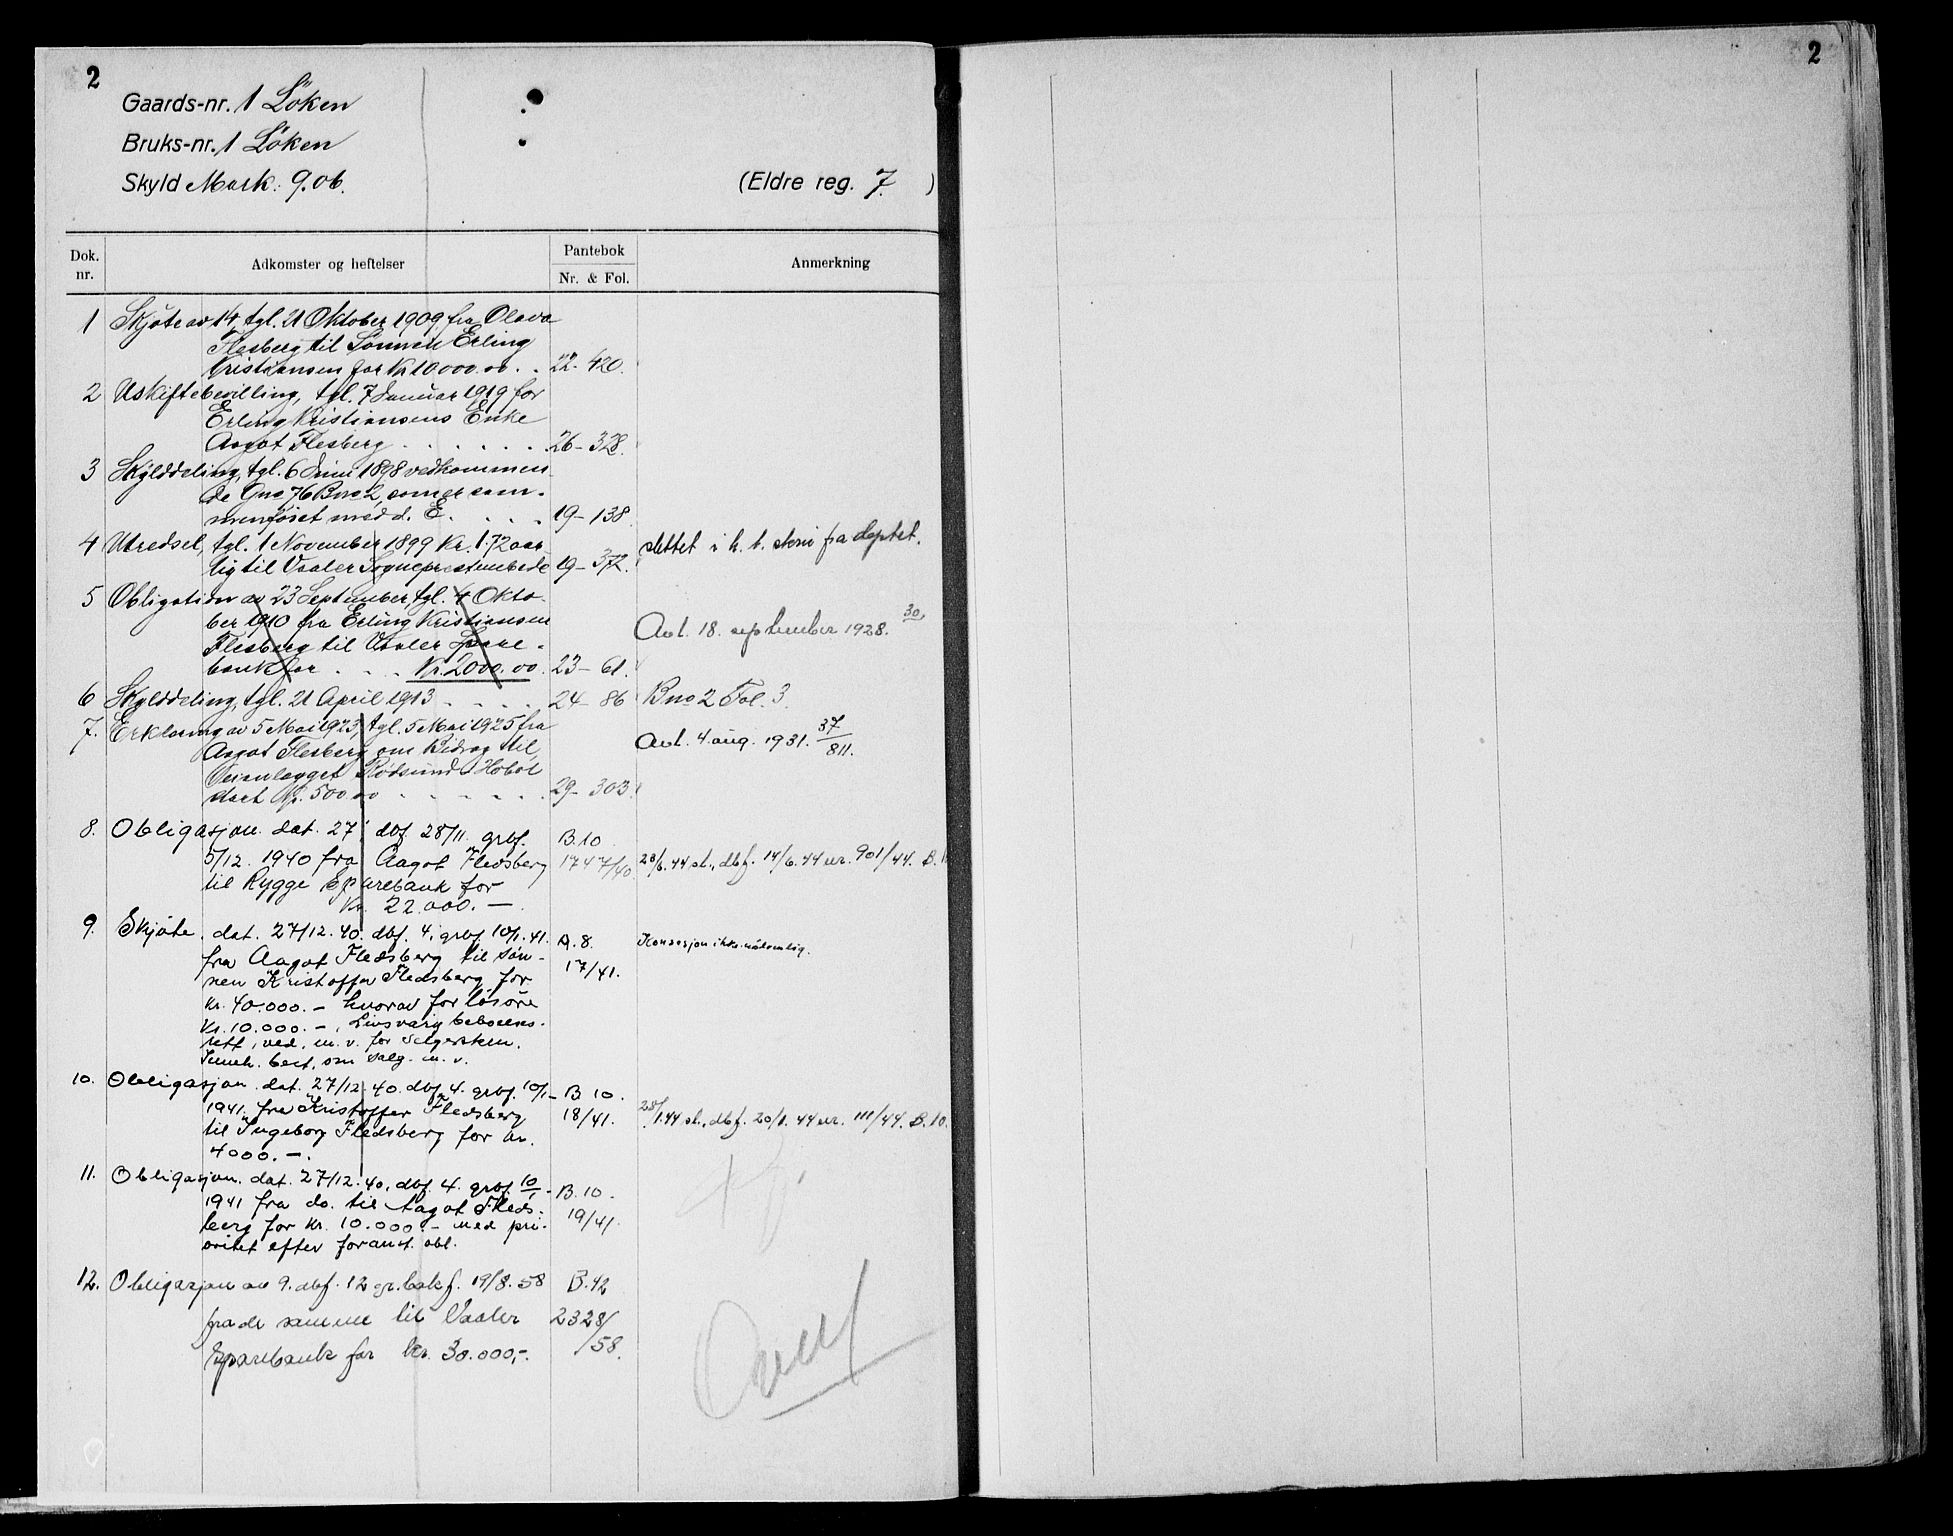 2
Gaards-nr. 1 Löken
Bruks-nr. 1 Löken
Skyld Mark: 9.06.
(Eldre reg. 7. )
Dok. nr.
Adkomster og heftelser
Pantebok
Nr. & Fol.
Anmerkning
1 Skjöte av 14, tgl. 21 Oktober 1909 fra Olava
Flesberg til Sönnen Erling
Kristiansen for Kr 10000.00 . . 22- 420.
2 Uskiftebevilling, tgl. 7 Januar 1919 for
Erling Kristiansens Enke
Aagot Flesberg . . . . . . 26- 328.
3 Skylddeling, tgl. 6 Juni 1898 vedkommen-
de Gno 76 Bno 2, som er sam-
menföiet med d. E. . . . 19- 138.
4 Utredsel, tgl. 1 November 1899 Kr. 1.72 aar-
lig til Vaaler Sogneprestembede 19- 372.
slettet i h. t. skriv fra deptet.
5 Obligation av 23 September, tgl. 4 Okto-
ber 1910 fra Erling Kristiansen
Flesberg til Vaaler Spare-
bank for . . . Kr. 2000.00. 23- 61.
Avl. 18. september 1928. 30
6 Skylddeling, tgl. 21 April 1913 . . . . 24- 86 Bno 2 Fol. 3.
7. Erklæring av 5 Mai 1923, tgl. 5 Mai 1925 fra
Aagot Flesberg om Bidrag til
Veianlægget Rödsund-Hoböl
stort Kr. 500.00 . . . . . . 29- 303.
Avl. 4 aug. 1931. 37/811.
8. Obligasjon. dat. 27, dbf. 28/11. grbf. B.10
5/12. 1940 fra Aagot Fledsberg 1747/40
til Rygge Sparebank for
Kr. 22.000.—
28/6.44 sl., dbf. 14/6.44 nr. 901/44. B.1
9. Skjöte. dat. 27/12.40. dbf. 4. grbf. 10/1.41. A.8.
fra Aagot Fledsberg til søn- 17/41.
nen Kristoffer Fledsberg for
kr. 40.000.— hvorav for lösöre
Kr. 10.000.—. Livsvarig beboelses-
rett, ved, m. v. for selgersken.
Inneh. best. om salg m. v.
Konsesjon ikke nödvendig.
10. Obligasjon. dat. 27/12.40. dbf. 4. grbf. 10/1- B 10.
1941. fra Kristoffer Fledsberg 18/41.
til Ingeborg Fledsberg for kr.
4000.—.
28/1.44 sl., dbf. 20/1.44 nr. 111/44. B.10.
11. Obligasjon. dat. 27/12.40, dbf. 4. grbf. 10/1- B.10.
1941 fra do. til Aagot Fleds- 19/41.
berg for kr. 10.000.— med pri-
oritet efter foranst. obl.
12. Obligasjon av 9. dbf. 12 gr.bokf. 19/8.58 B.42
fra de samme til Vaaler 2328/
Sparebank for kr. 30.000,-. 58.
2